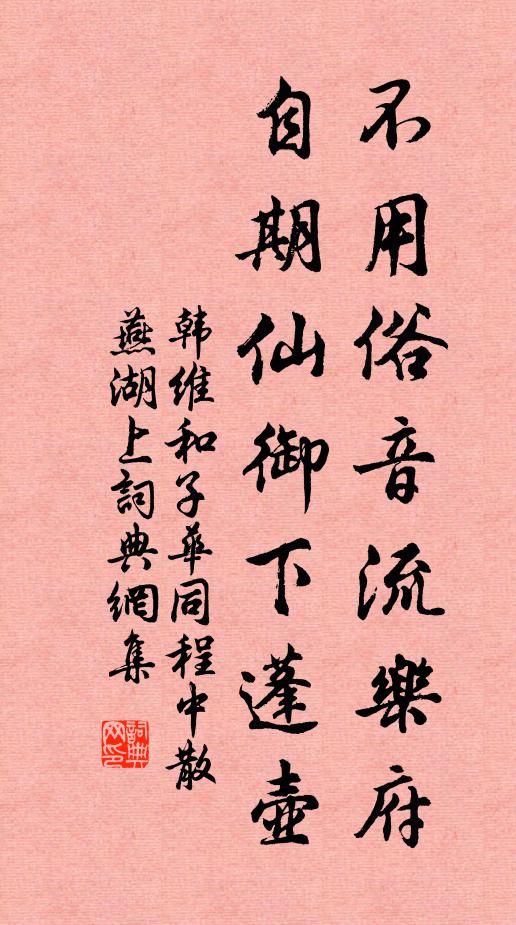 不用俗音流樂府
自期仙御下蓬壺
韩维和子華同程中散
燕湖上詞典網集
詞典网印